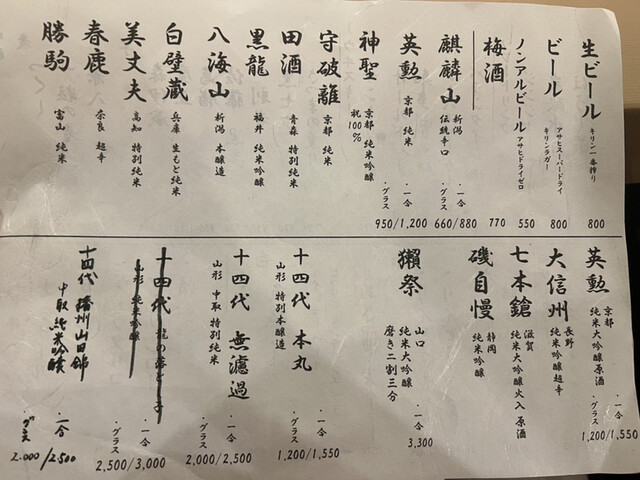 生ビール キリン一番搾り 800
ビール アサヒスーパードライ キリンラガー 800
ノンアルビール アサヒドライゼロ 550
梅酒 770
麒麟山 新潟 伝統辛口 ・一合 ・グラス 660/880
英勲 京都 純米 ・一合 ・グラス 950/1,200
神聖 京都 純米吟醸 祝100%
守破離 京都 純米
田酒 青森 特別純米
黒龍 福井 純米吟醸
八海山 新潟 本醸造
白壁蔵 兵庫 生もと純米
美丈夫 高知 特別純米
春鹿 奈良 超辛
勝駒 富山 純米
英勲 京都 純米大吟醸原酒 ・一合 ・グラス 1,200/1,550
大信州 長野 純米吟醸超辛
七本鎗 滋賀 純米大吟醸火入原酒
磯自慢 静岡 純米吟醸
獺祭 山口 純米大吟醸 磨き二割三分 ・一合 3,300
十四代 本丸 山形 特別本醸造 ・一合 ・グラス 1,200/1,550
十四代 無濾過 山形 中取特別純米 ・一合 ・グラス 2,000/2,500
十四代 龍の落とし子 山形 純米吟醸 ・一合 ・グラス 2,500/3,000
十四代 播州山田錦 中取純米吟醸 ・一合 ・グラス 2.000/2.500